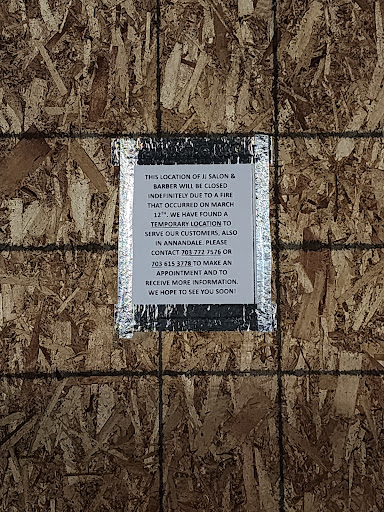 THIS LOCATION OF JJ SALON &
BARBER WILL BE CLOSED
INDEFINITELY DUE TO A FIRE
THAT OCCURRED ON MARCH
12TH. WE HAVE FOUND A
TEMPORARY LOCATION TO
SERVE OUR CUSTOMERS, ALSO
IN ANNANDALE. PLEASE
CONTACT 703 772 7576 OR
703 615 3778 TO MAKE AN
APPOINTMENT AND TO
RECEIVE MORE INFORMATION.
WE HOPE TO SEE YOU SOON!